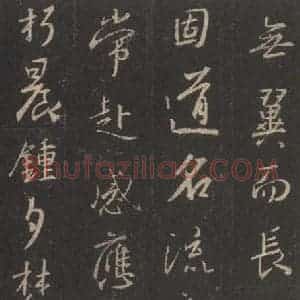 無翼而長
固道名流
常赴感應
朽晨鍾夕
Shufaziliao.COM